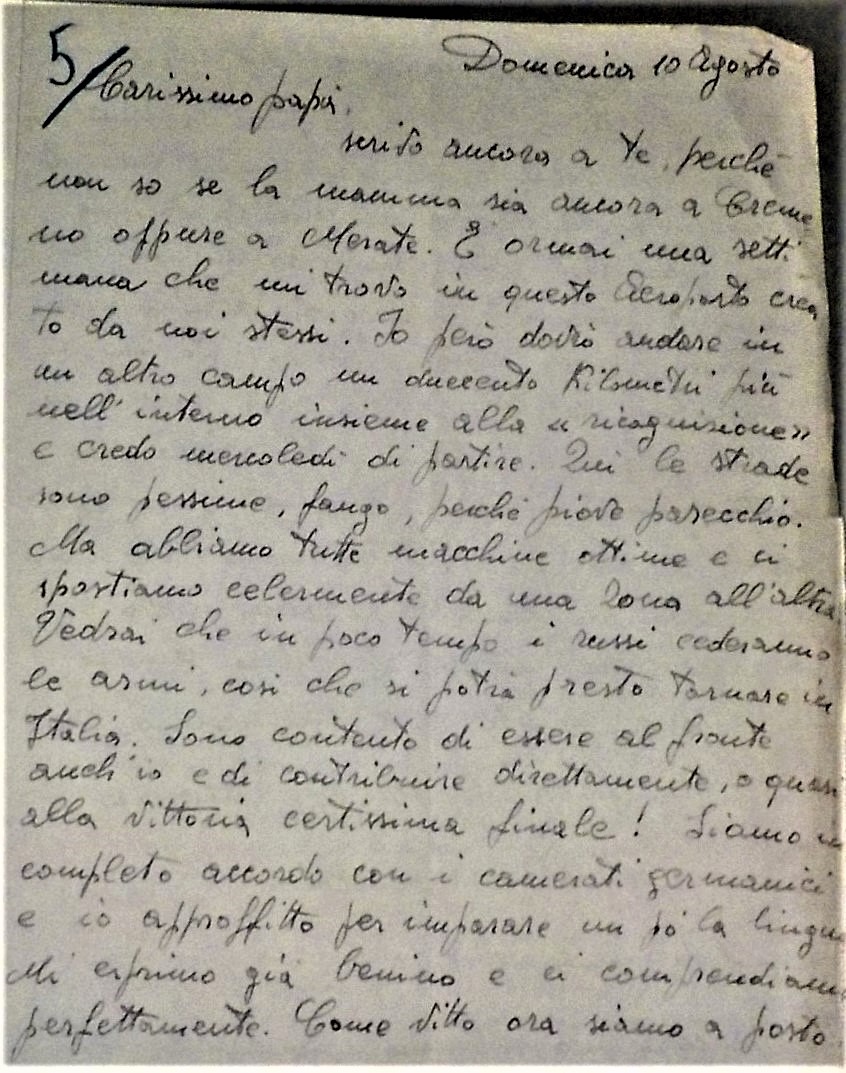 5/
Domenica 10 Agosto
Carissimo papà,
scrivo ancora a te, perché
non so se la mamma sia ancora a Creme
no oppure a Merate. È ormai una setti
mana che mi trovo in questo Aeroporto crea
to da noi stessi. Io però dovrò andare in
un altro campo un duecento Kilometri più
nell'interno insieme alla «ricognizione»
e credo mercoledì di partire. Qui le strade
sono pessime, fango, perché piove parecchio.
Ma abbiamo tutte macchine ottime e ci
spostiamo celermente da una zona all'altra.
Vedrai che in poco tempo i russi cederanno
le armi, così che si potrà presto tornare in
Italia. Sono contento di essere al fronte
anch'io e di contribuire direttamente, o quasi
alla vittoria certissima finale! Siamo in
completo accordo con i camerati germanici
e io approffitto per imparare un pò la lingua
Mi esprimo già benino e ci comprendiamo
perfettamente. Come vitto ora siamo a posto.